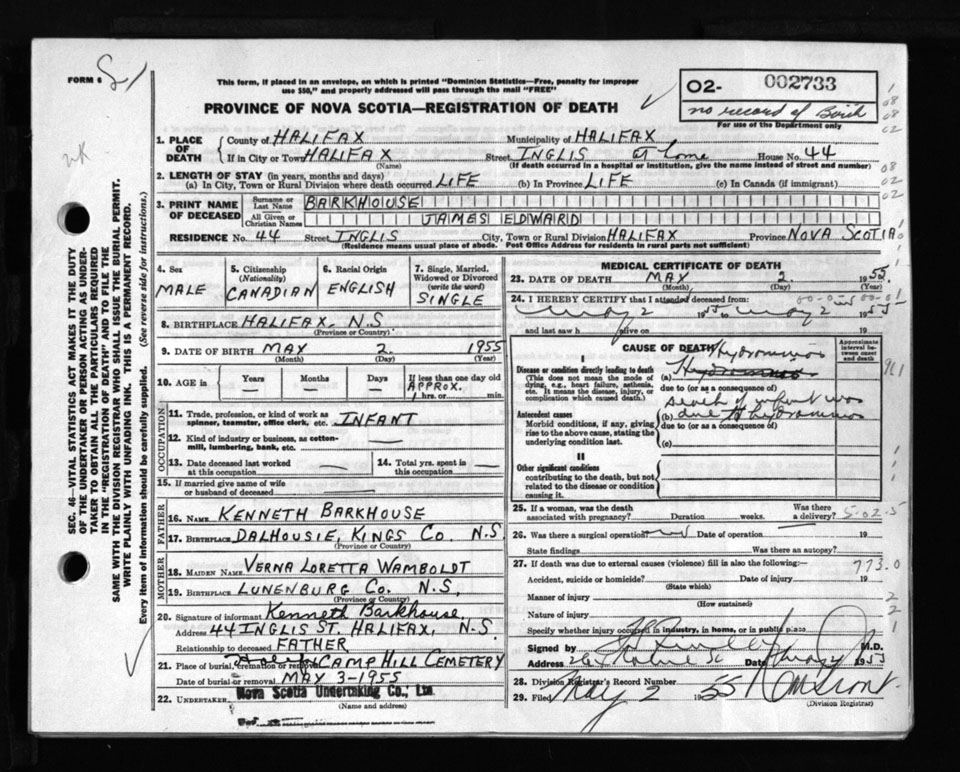 FORM 6
This form, if placed in an envelope, on which is printed "Dominion Statistics—Free, penalty for improper
use $50," and properly addressed will pass through the mail "FREE"
PROVINCE OF NOVA SCOTIA—REGISTRATION OF DEATH
02- 002733
no record of Birth
For use of the Department only
1. PLACE OF DEATH
County of HALIFAX Municipality of HALIFAX
If in City or Town HALIFAX Street INGLIS at home House No. 44
(Name) (If death occurred in a hospital or institution, give the name instead of street and number)
2. LENGTH OF STAY (in years, months and days)
(a) In City, Town or Rural Division where death occurred LIFE (b) In Province LIFE (c) In Canada (if immigrant)
3. PRINT NAME OF DECEASED
Surname or Last Name BARKHOUSE
All Given or Christian Names JAMES EDWARD
RESIDENCE No. 44 Street INGLIS City, Town or Rural Division HALIFAX Province NOVA SCOTIA
(Residence means usual place of abode. Post Office Address for residents in rural parts not sufficient)
4. Sex MALE
5. Citizenship (Nationality) CANADIAN
6. Racial Origin ENGLISH
7. Single, Married, Widowed or Divorced (write the word) SINGLE
8. BIRTHPLACE HALIFAX, N.S
(Province or Country)
9. DATE OF BIRTH MAY 2. 1955
(Month) (Day) (Year)
10. AGE in Years — Months — Days — If less than one day old APPROX. 1 hrs. or min.
OCCUPATION
11. Trade, profession, or kind of work as spinner, teamster, office clerk, etc. INFANT
12. Kind of industry or business, as cotton-mill, lumbering, bank, etc. —
13. Date deceased last worked at this occupation —
14. Total yrs. spent in this occupation —
15. If married give name of wife or husband of deceased —
FATHER
16. NAME KENNETH BARKHOUSE
17. BIRTHPLACE DALHOUSIE, KINGS CO. N.S
(Province or Country)
MOTHER
18. MAIDEN NAME VERNA LORETTA WAMBOLDT
19. BIRTHPLACE LUNENBURG CO. N.S,
(Province or Country)
20. Signature of informant Kenneth Barkhouse,
Address 44 INGLIS ST. HALIFAX, N.S.
Relationship to deceased FATHER
21. Place of burial, cremation or removal CAMP HILL CEMETERY
Date of burial or removal MAY 3-1955
22. UNDERTAKER Nova Scotia Undertaking Co., Ltd.
(Name and address)
MEDICAL CERTIFICATE OF DEATH
23. DATE OF DEATH MAY 2. 1955.
(Month) (Day) (Year)
24. I HEREBY CERTIFY that I attended deceased from:
May 2 1955 to May 2 1955
and last saw h alive on 19
CAUSE OF DEATH
Approximate interval between onset and death
I
Disease or condition directly leading to death
(This does not mean the mode of dying, e.g., heart failure, asthenia, etc. It means the disease, injury, or complication which caused death.)
(a) Hydramnios
due to (or as a consequence of)
Antecedent causes
Morbid conditions, if any, giving rise to the above cause, stating the underlying condition last.
death of infant was
(b) due to hydramnios
due to (or as a consequence of)
(c)
II
Other significant conditions
contributing to the death, but not related to the disease or condition causing it.
25. If a woman, was the death associated with pregnancy? Duration weeks. Was there a delivery?
26. Was there a surgical operation Date of operation 19
State findings Was there an autopsy?
27. If death was due to external causes (violence) fill in also the following:—
Accident, suicide or homicide? Date of injury 19
(State which)
Manner of injury
(How sustained)
Nature of injury
Specify whether injury occurred in industry, in home, or in public place
Signed by M.D.
Address Date 19
28. Division Registrar's Record Number
29. Filed May 2 1955
(Division Registrar)
SEC. 46—VITAL STATISTICS ACT MAKES IT THE DUTY
OF THE UNDERTAKER OR PERSON ACTING AS UNDER-
TAKER TO OBTAIN ALL THE PARTICULARS REQUIRED
IN THE "REGISTRATION OF DEATH" AND TO FILE THE
SAME WITH THE DIVISION REGISTRAR WHO SHALL ISSUE THE BURIAL PERMIT.
WRITE PLAINLY WITH UNFADING INK. THIS IS A PERMANENT RECORD.
Every item of information should be carefully supplied. (See reverse side for instructions.)